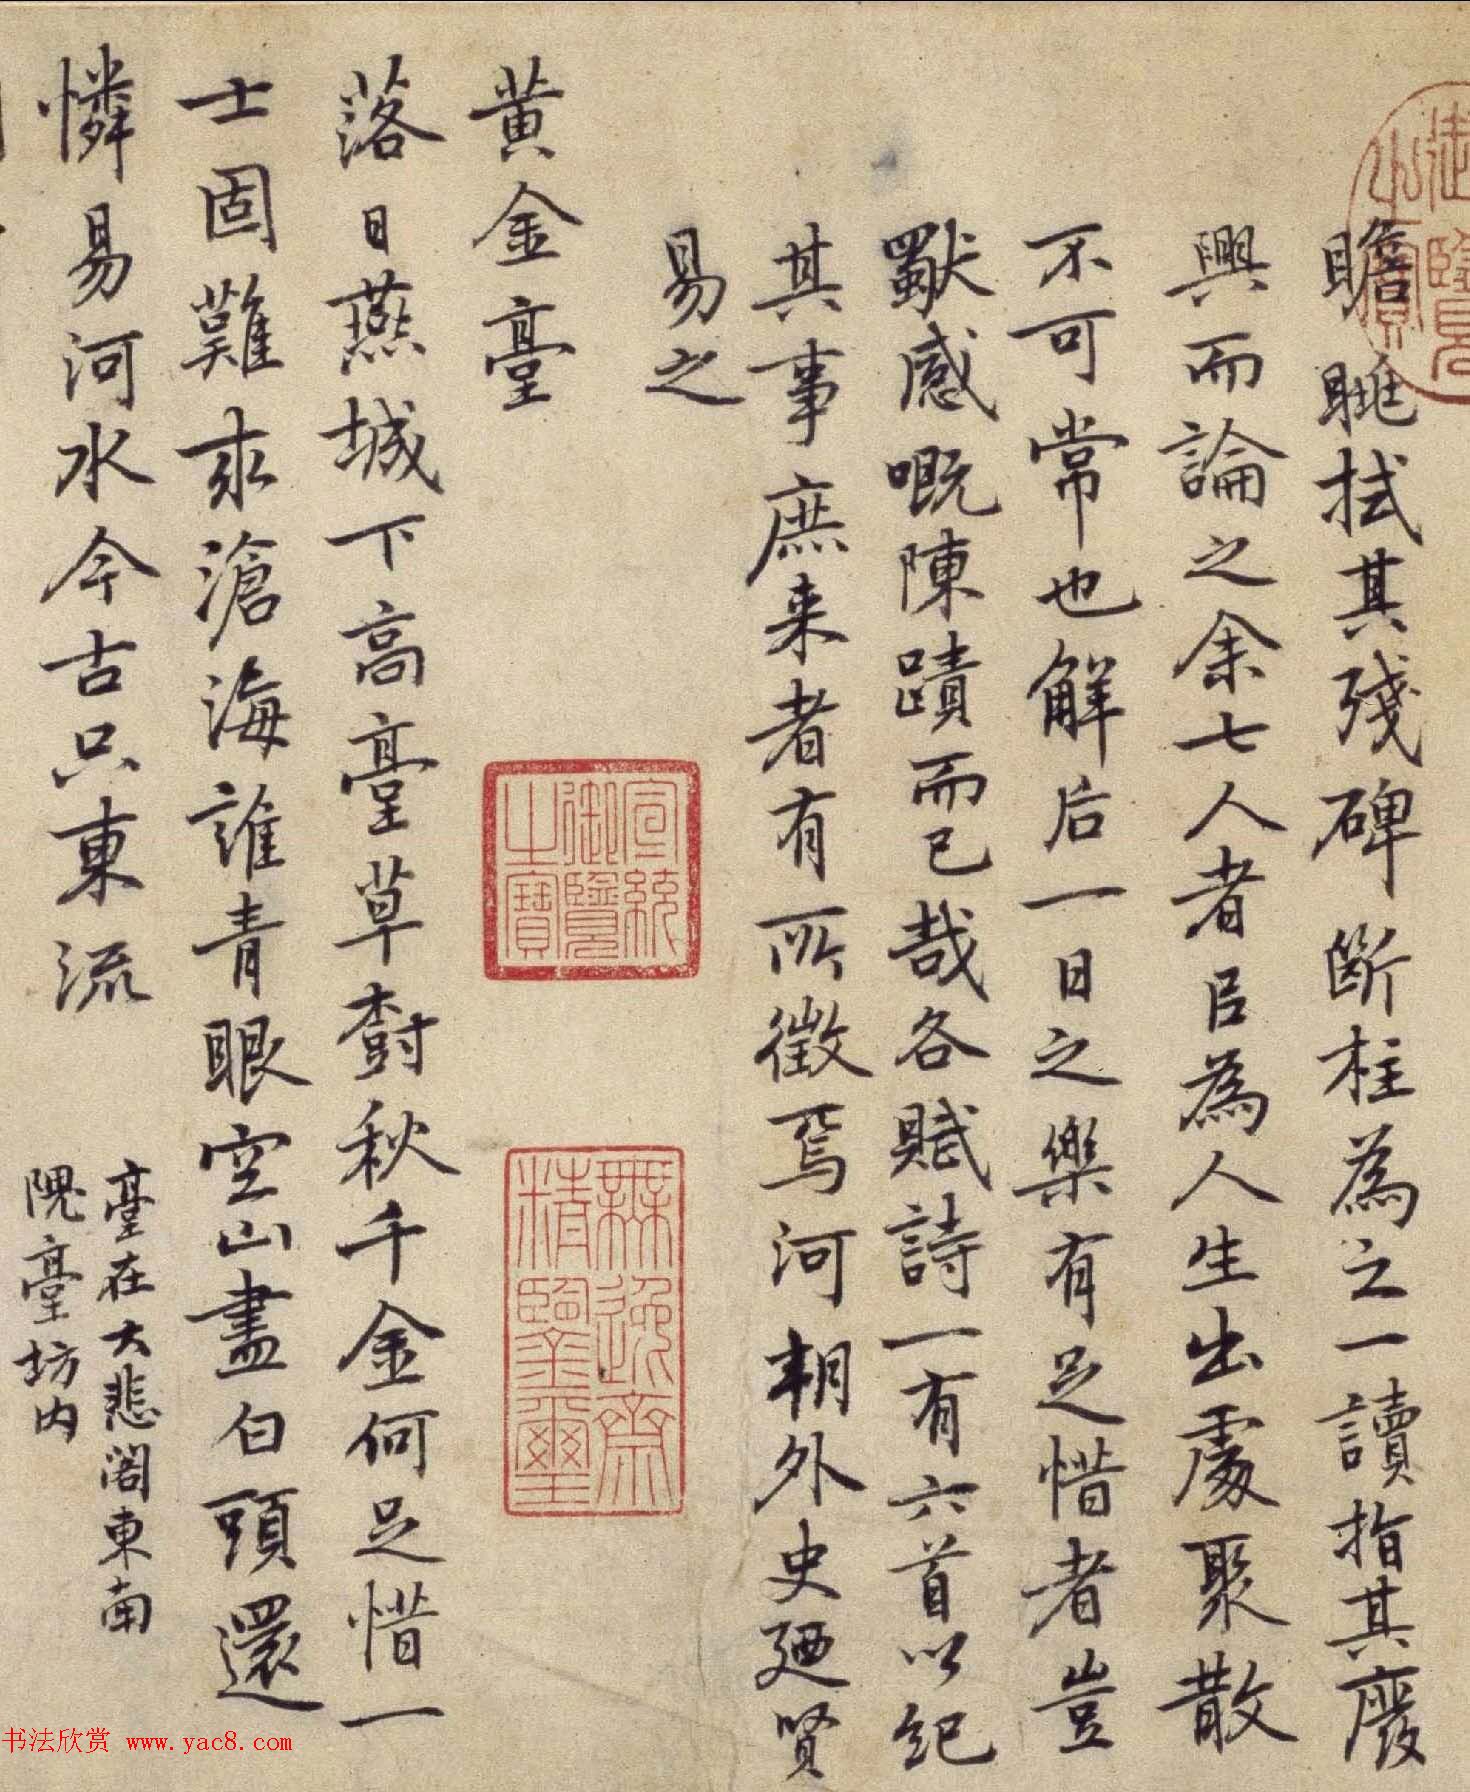 瞻眺拭其殘碑斷柱為之一讀指其廢
興而論之余七人者臣為人生出處聚散
不可常也解后一日之樂有足惜者豈
獸感嘅陳蹟而已哉各賦詩一有六首以紀
其事庶来者有所徵焉河朝外史廼賢
易之
黄金臺
落日燕城下高臺草樹秋千金何足惜一
士固難求滄海誰青眼空山盡白頭還
憐易河水今古只東流
臺在大悲閣東南
隗臺坊内
宣統御覽之寶
無逸齋精鑒璽
御覽之寶
书法欣赏 www.yac8.com